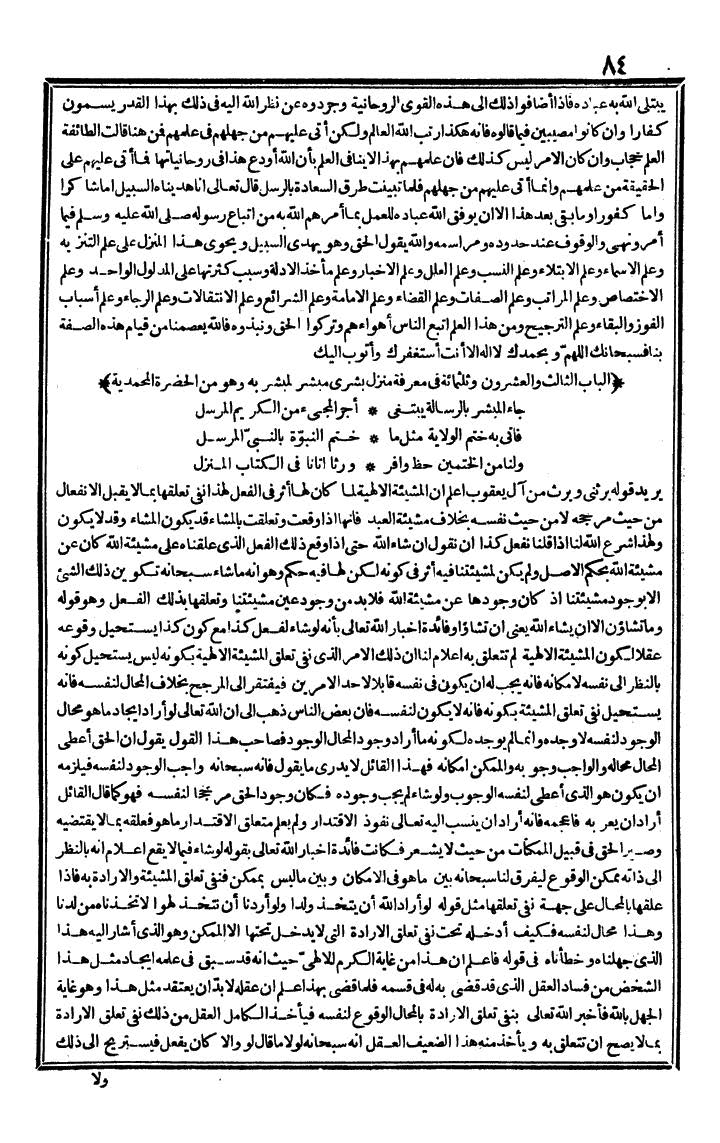 ٨٤
يبتلى الله به عباده فاذا أضافوا ذلك الى هذه القوى الروحانية وجردوه عن نظر الله اليه فى ذلك بهذا القدر يسمون
كفارا وان كانوا مصيبين فيما قالوه فانه هكذا رتب الله العالم ولكن أتى عليهم من جهلهم فى علمهم فمن هنا قالت الطائفة
العلم حجاب وان كان الامر ليس كذلك فان علمهم بهذا لاينافى العلم بأن الله أودع هذا فى روحانياتها فما أتى عليهم على
الحقيقة من علمهم وانما أتى عليهم من جهلهم فلما تبينت طرق السعادة بالرسل قال تعالى اناهديناه السبيل اما شاكرا
واما كفورا وما بقى بعد هذا الا ان يوفق الله عباده للعمل بما أمرهم الله به من اتباع رسوله صلى الله عليه وسلم فيما
أمر ونهى والوقوف عند حدوده ومراسمه والله يقول الحق وهو يهدى السبيل ويحوى هذا المنزل على علم التنزيه
وعلم الاسماء وعلم الابتلاء وعلم النسب وعلم العلل وعلم الاخبار وعلم مأخذ الادلة وسبب كثرتها على المدلول الواحد وعلم
الاختصاص وعلم المراتب وعلم الصفات وعلم القضاء وعلم الامامة وعلم الشرائع وعلم الانتقالات وعلم الرجاء وعلم أسباب
الفوز والبقاء وعلم الترجيح ومن هذا العلم اتبع الناس أهواءهم وتركوا الحق ونبذوه فالله يعصمنا من قيام هذه الصفة
بنا فسبحانك اللهم وبحمدك لا اله الا أنت أستغفرك وأتوب اليك
﴿الباب الثالث والعشرون وثلثمائة فى معرفة منزل بشرى مبشر لمبشر به وهو من الحضرة المحمدية﴾
جاء المبشر بالرسالة يبتغى * أجر المجىء من الكريم المرسل
فأتى به ختم الولاية مثل ما * ختم النبوّة بالنبىّ المرسل
ولنا من الختمين حظ وافر * ورثا اتانا فى الكتاب المنزل
يريد قوله يرثنى ويرث من آل يعقوب اعلم ان المشيئة الالهية لما كان لها أثر فى الفعل لهذا نفى تعلقها بما لا يقبل الانفعال
من حيث مرجحه لا من حيث نفسه بخلاف مشيئة العبد فانها اذا وقعت وتعلقت بالمشاء قد يكون المشاء وقد لا يكون
ولهذا شرع الله لنا اذا قلنا نفعل كذا ان نقول ان شاء الله حتى اذا وقع ذلك الفعل الذى علقناه على مشيئة الله كان عن
مشيئة الله بحكم الاصل ولم يكن لمشيئتنا فيه أثر فى كونه لكن لها فيه حكم وهو انه ما شاء سبحانه تكوين ذلك الشئ
الا بوجود مشيئتنا اذ كان وجودها عن مشيئة الله فلا بد من وجود عين مشيئتنا وتعلقها بذلك الفعل وهو قوله
وما تشاؤن الا ان يشاء الله يعنى ان تشاؤا وفائدة اخبار الله تعالى بأنه لو شاء لفعل كذا مع كون كذا يستحيل وقوعه
عقلا لكون المشيئة الالهية لم تتعلق به اعلام لنا ان ذلك الامر الذى نفى تعلق المشيئة الالهية بكونه ليس يستحيل كونه
بالنظر الى نفسه لامكانه فانه يجب له ان يكون فى نفسه قابلا لاحد الامرين فيفتقر الى المرجح بخلاف المحال لنفسه فانه
يستحيل نفى تعلق المشيئة بكونه فانه لا يكون لنفسه فان بعض الناس ذهب الى ان الله تعالى لو أراد ايجاد ما هو محال
الوجود لنفسه لاوجده وانما لم يوجده لكونه ما أراد وجود المحال الوجود فصاحب هذا القول يقول ان الحق أعطى
المحال محاله والواجب وجوبه والممكن امكانه فهذا القائل لا يدرى ما يقول فانه سبحانه واجب الوجود لنفسه فيلزمه
ان يكون هو الذى أعطى لنفسه الوجوب ولو شاء لم يجب وجوده فكان وجود الحق مرجحا لنفسه فهو كما قال القائل
أراد ان يعربه فأعجمه فانه أراد ان ينسب اليه تعالى نفوذ الاقتدار ولم يعلم متعلق الاقتدار ما هو فعلقه بما لا يقتضيه
وصير الحق فى قبيل الممكنات من حيث لا يشعر فكانت فائدة اخبار الله تعالى بقوله لو شاء فيما لا يقع اعلام انه بالنظر
الى ذاته ممكن الوقوع ليفرق لنا سبحانه بين ما هو فى الامكان وبين ما ليس بممكن فنفى تعلق المشيئة والارادة به فاذا
علقها بالمحال على جهة نفى تعلقها مثل قوله لو أراد الله أن يتخذ ولدا ولو أردنا أن نتخذ لهوا لاتخذناه من لدنا
وهذا محال لنفسه فكيف أدخله تحت نفى تعلق الارادة التى لا يدخل تحتها الا الممكن وهو الذى أشار اليه هذا
الذى جهلناه وخطأناه فى قوله فاعلم ان هذا من غاية الكرم للالهىّ حيث انه قد سبق فى علمه ايجاد مثل هذا
الشخص من فساد العقل الذى قد قضى به له فى قسمه فلما قضى بهذا علم ان عقله لا بدّ ان يعتقد مثل هذا وهو غاية
الجهل بالله فأخبر الله تعالى بنفى تعلق الارادة بالمحال الوقوع لنفسه فيأخذ الكامل العقل من ذلك نفى تعلق الارادة
بما لا يصح ان تتعلق به ويأخذ منه هذا الضعيف العقل انه سبحانه لولا ما قال لو والا كان يفعل فيستريح الى ذلك
ولا